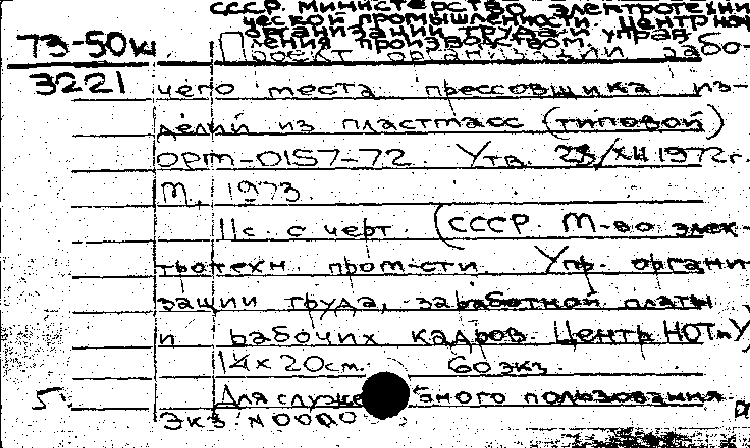 СССР. МИНИСТЕРСТВО ЭЛЕКТРОТЕХНИ
ЧЕСКОЙ ПРОМЫШЛЕННОСТИ. ЦЕНТР НОТ
ОРГАНИЗАЦИИ ТРУДА И УПРАВ
ЛЕНИЯ ПРОИЗВОДСТВОМ.
73-50кн
3221
Проект организации рабо-
чего места прессовщика из-
делий из пластмасс (типовой)
ОРТ-0157-72. Утв. 23/XII 1972г.
М., 1973.
11с. с черт. (СССР. М-во элек-
тротехн. пром-сти. Упр. органи-
зации труда, заработной платы
и рабочих кадров. Центр НОТиУ)
14×20см. 60 экз.
Для служебного пользования.
Экз. №0000